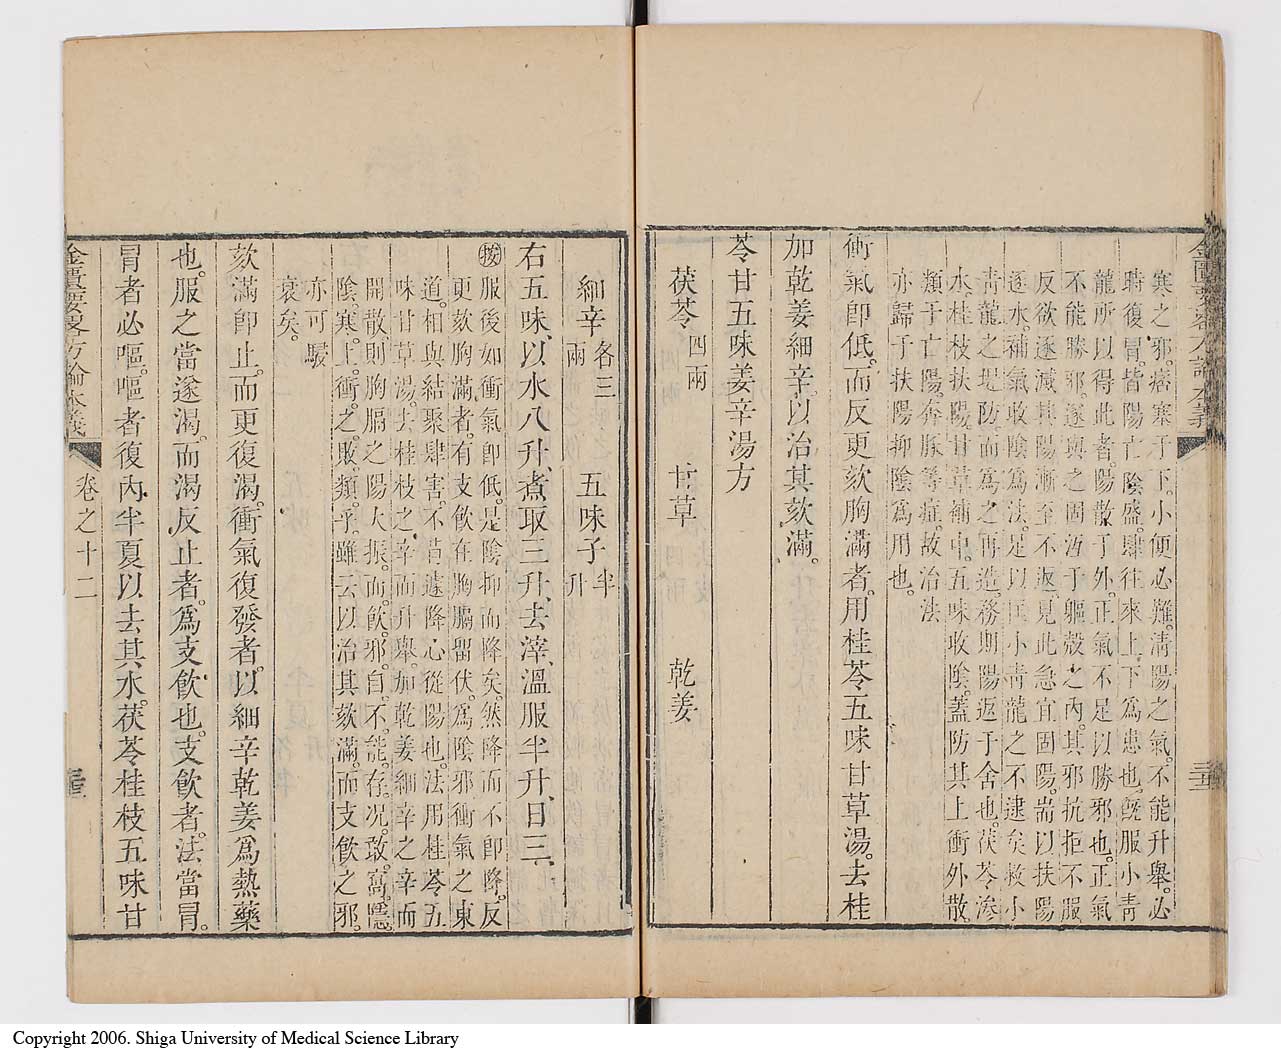 寒之邪。痞塞于下。小便必難。清陽之氣。不能升舉。必
時復冒。皆陽亡陰盛。肆往來上下為患也。旣服小青
龍所以得此者。陽散于外。正氣不足以勝邪也。正氣
不能勝邪。遂與之固沍于軀殼之內。其邪抗拒不服
反欲逐減其陽漸至不返。見此急宜固陽。耑以扶陽
逐水。補氣收陰爲法。足以匡小青龍之不逮矣救小
青龍之堤防。而爲之再造。務期陽返于舍也。茯苓滲
水。桂枝扶陽。甘草補中。五味收陰。蓋防其上衝外散
類于亡陽。奔豚等症。故治法
亦歸于扶陽抑陰爲用也。
衝氣卽低。而反更欬胸滿者。用桂苓五味甘草湯。去桂
加乾姜細辛。以治其欬滿。
苓甘五味姜辛湯方
茯苓四兩 甘草 乾姜
細辛各三兩 五味子半升
右五味、以水八升、煮取三升、去滓、溫服半升、日三、
按服後如衝氣卽低。是陰抑而降矣。然降而不卽降。反
更欬胸滿者。有支飲在胸膈畱伏。爲陰邪衝氣之東
道。相與結聚肆害。不肯遽降心從陽也。法用桂苓五
味甘草湯。去桂枝之辛而升舉。加乾姜細辛之辛而
開散。則胸膈之陽大振。而飲邪。自不能存。况敢窩隱
陰寒。上衝之敗類乎。雖云以治其欬滿。而支飲之邪。
亦可駸
衰矣。
欬滿卽止。而更復渴。衝氣復發者。以細辛乾姜爲熱藥
也。服之當遂渴。而渴反止者。爲支飲也。支飲者。法當冒。
冒者必嘔。嘔者復內半夏以去其水。茯苓桂枝五味甘
金匱要畧方論本義 卷之十二